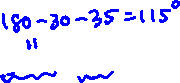 180-30-35=115°
"